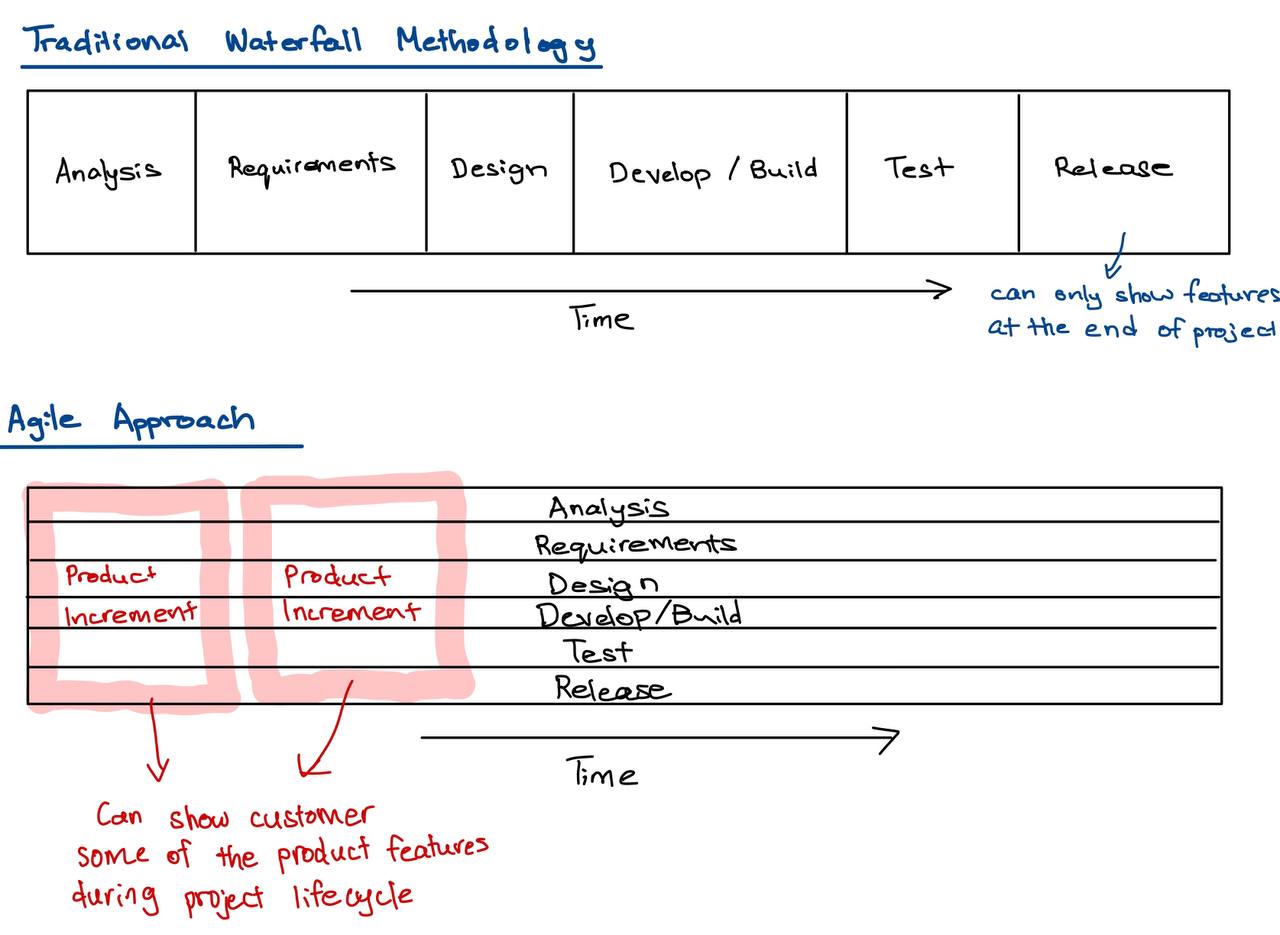 Traditional Waterfall Methodology
Analysis
Requirements
Design
Develop / Build
Test
Release
Time
can only show features
at the end of project
Agile Approach
Analysis
Requirements
Product
Product
Design
Increment
Increment
Develop/Build
Test
Release
Time
Can show customer
some of the product features
during project lifecycle